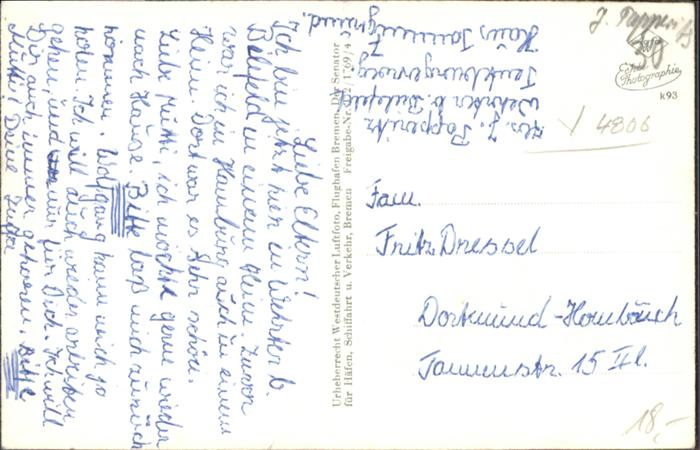 Liebe Eltern!
Ich bin jetzt hier in Wehrter b.
Bielefeld in einem Heim. Zuvor
war ich in Hamburg auch in einem
Heim. Dort war es sehr schön.
Liebe Mutti, ich möchte gerne wieder
nach Hause. Bitte laß mich zurück
kommen. Wolfgang kann mich ja
holen. Ich will auch wieder arbeiten
gehen, und nur für Dich. Ich will
Dir auch immer gehorchen. Bitte
Mutti! Deine
Urheberrecht Westdeutscher Luftfoto, Flughafen Bremen, Der Senator
für Häfen, Schiffahrt u. Verkehr, Bremen Freigabe-Nr. 1769/4
Abs. J. Papperitz
Wehrter b. Bielefeld
Haus Tannengrund.
J. Papperitz
30
Echte
Photographie
K 93
4806
Fam.
Fritz Dressel
Dortmund-Hombruch
Tannenstr. 15 II.
18,-